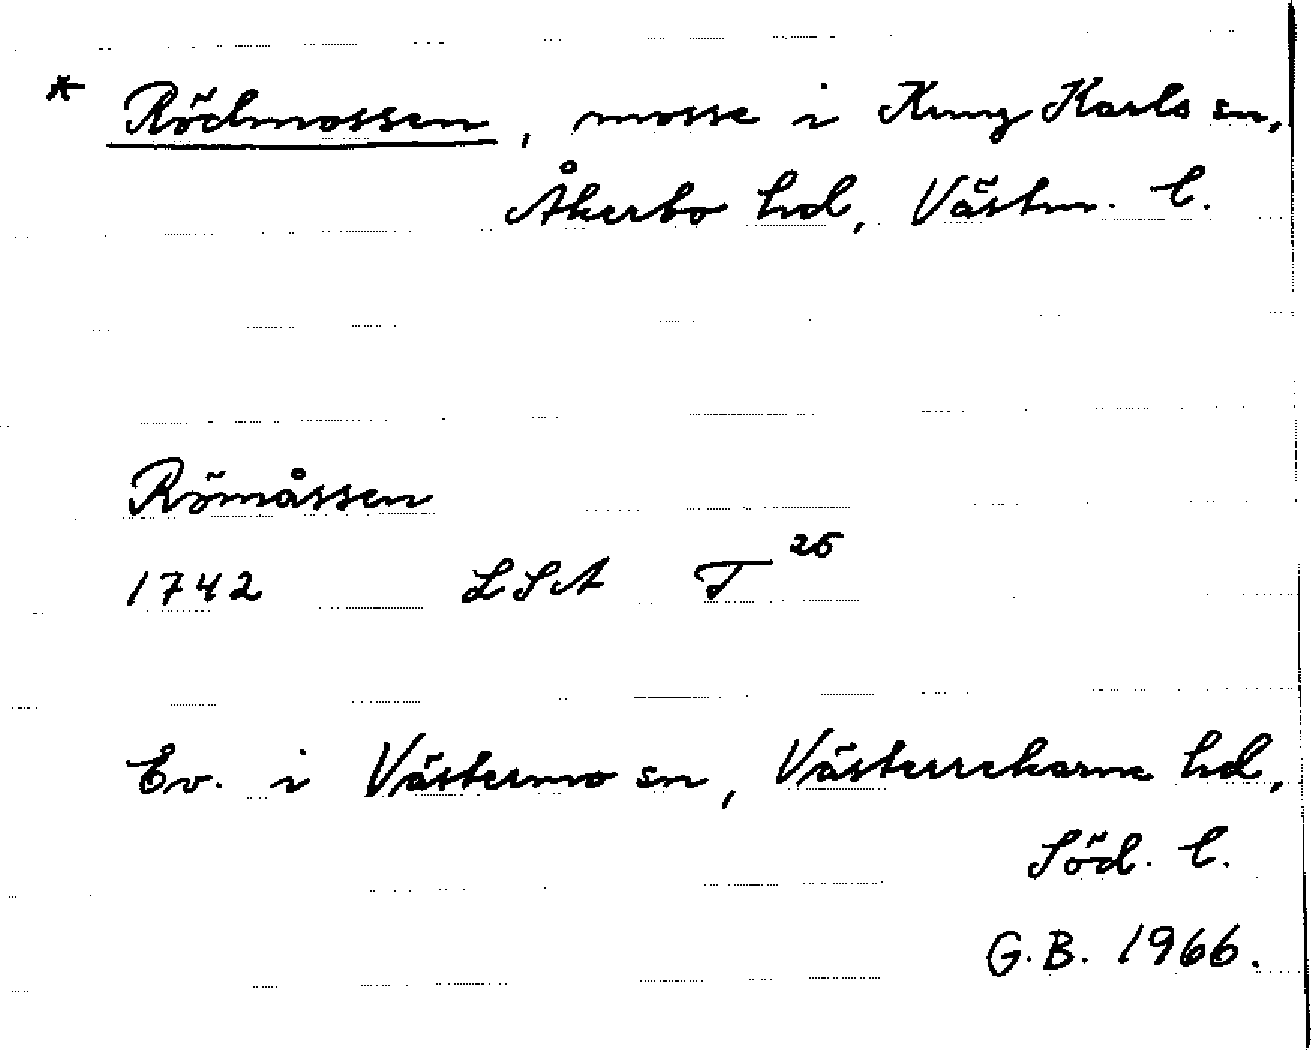 * Rödmossen, mosse i Kung Karls sn,
Åkerbo hd, Västm. l.
Römåssen
1742 LSA T 26
Ev. i Västermo sn, Västerrekarne hd,
Söd. l.
G.B. 1966.